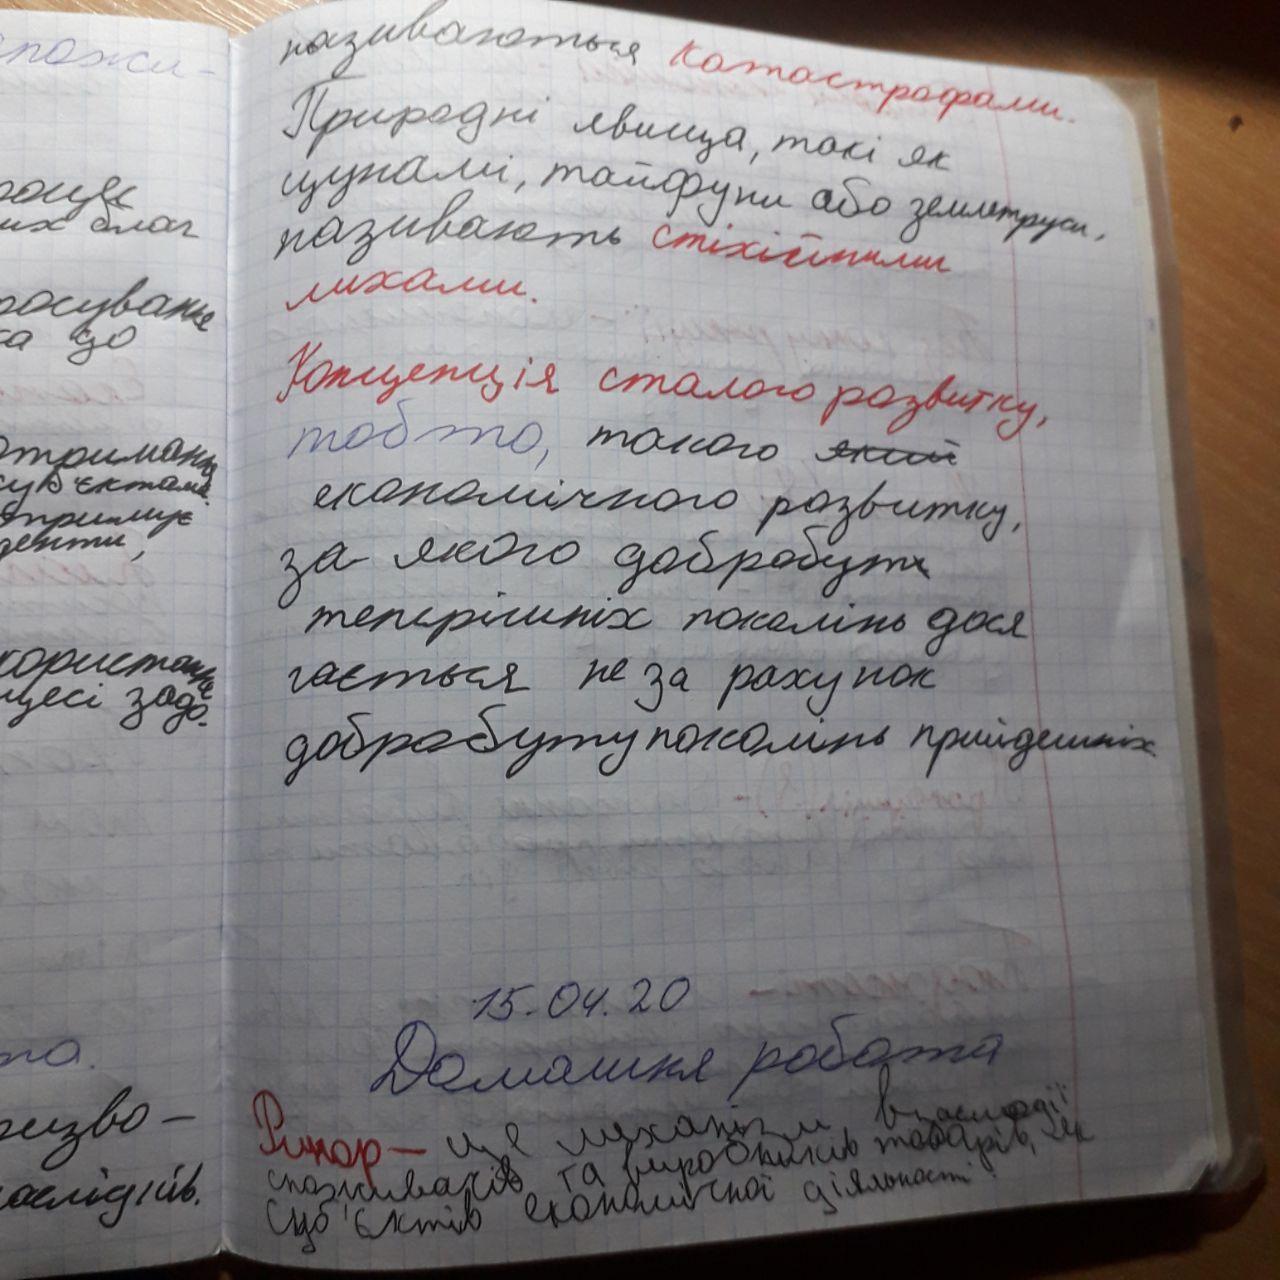 спожи-
них благ
до
отримання
суб'єктами
отримує
користання
цесі задо-
наслідків.
називаються катастрофами.
Природні явища, такі як
цунамі, тайфуни або землетруси,
називають стіхійними
лихами.
Концепція сталого розвитку,
тобто, такого який
економічного розвитку,
за якого добробути
теперішніх поколінь дося
гається не за рахунок
добробуту поколінь прийдешніх
15.04.20
Домашня робота
Ринор — це механізм взаємодії
споживачів та виробників товарів, як
суб'єктів економічної діяльності.